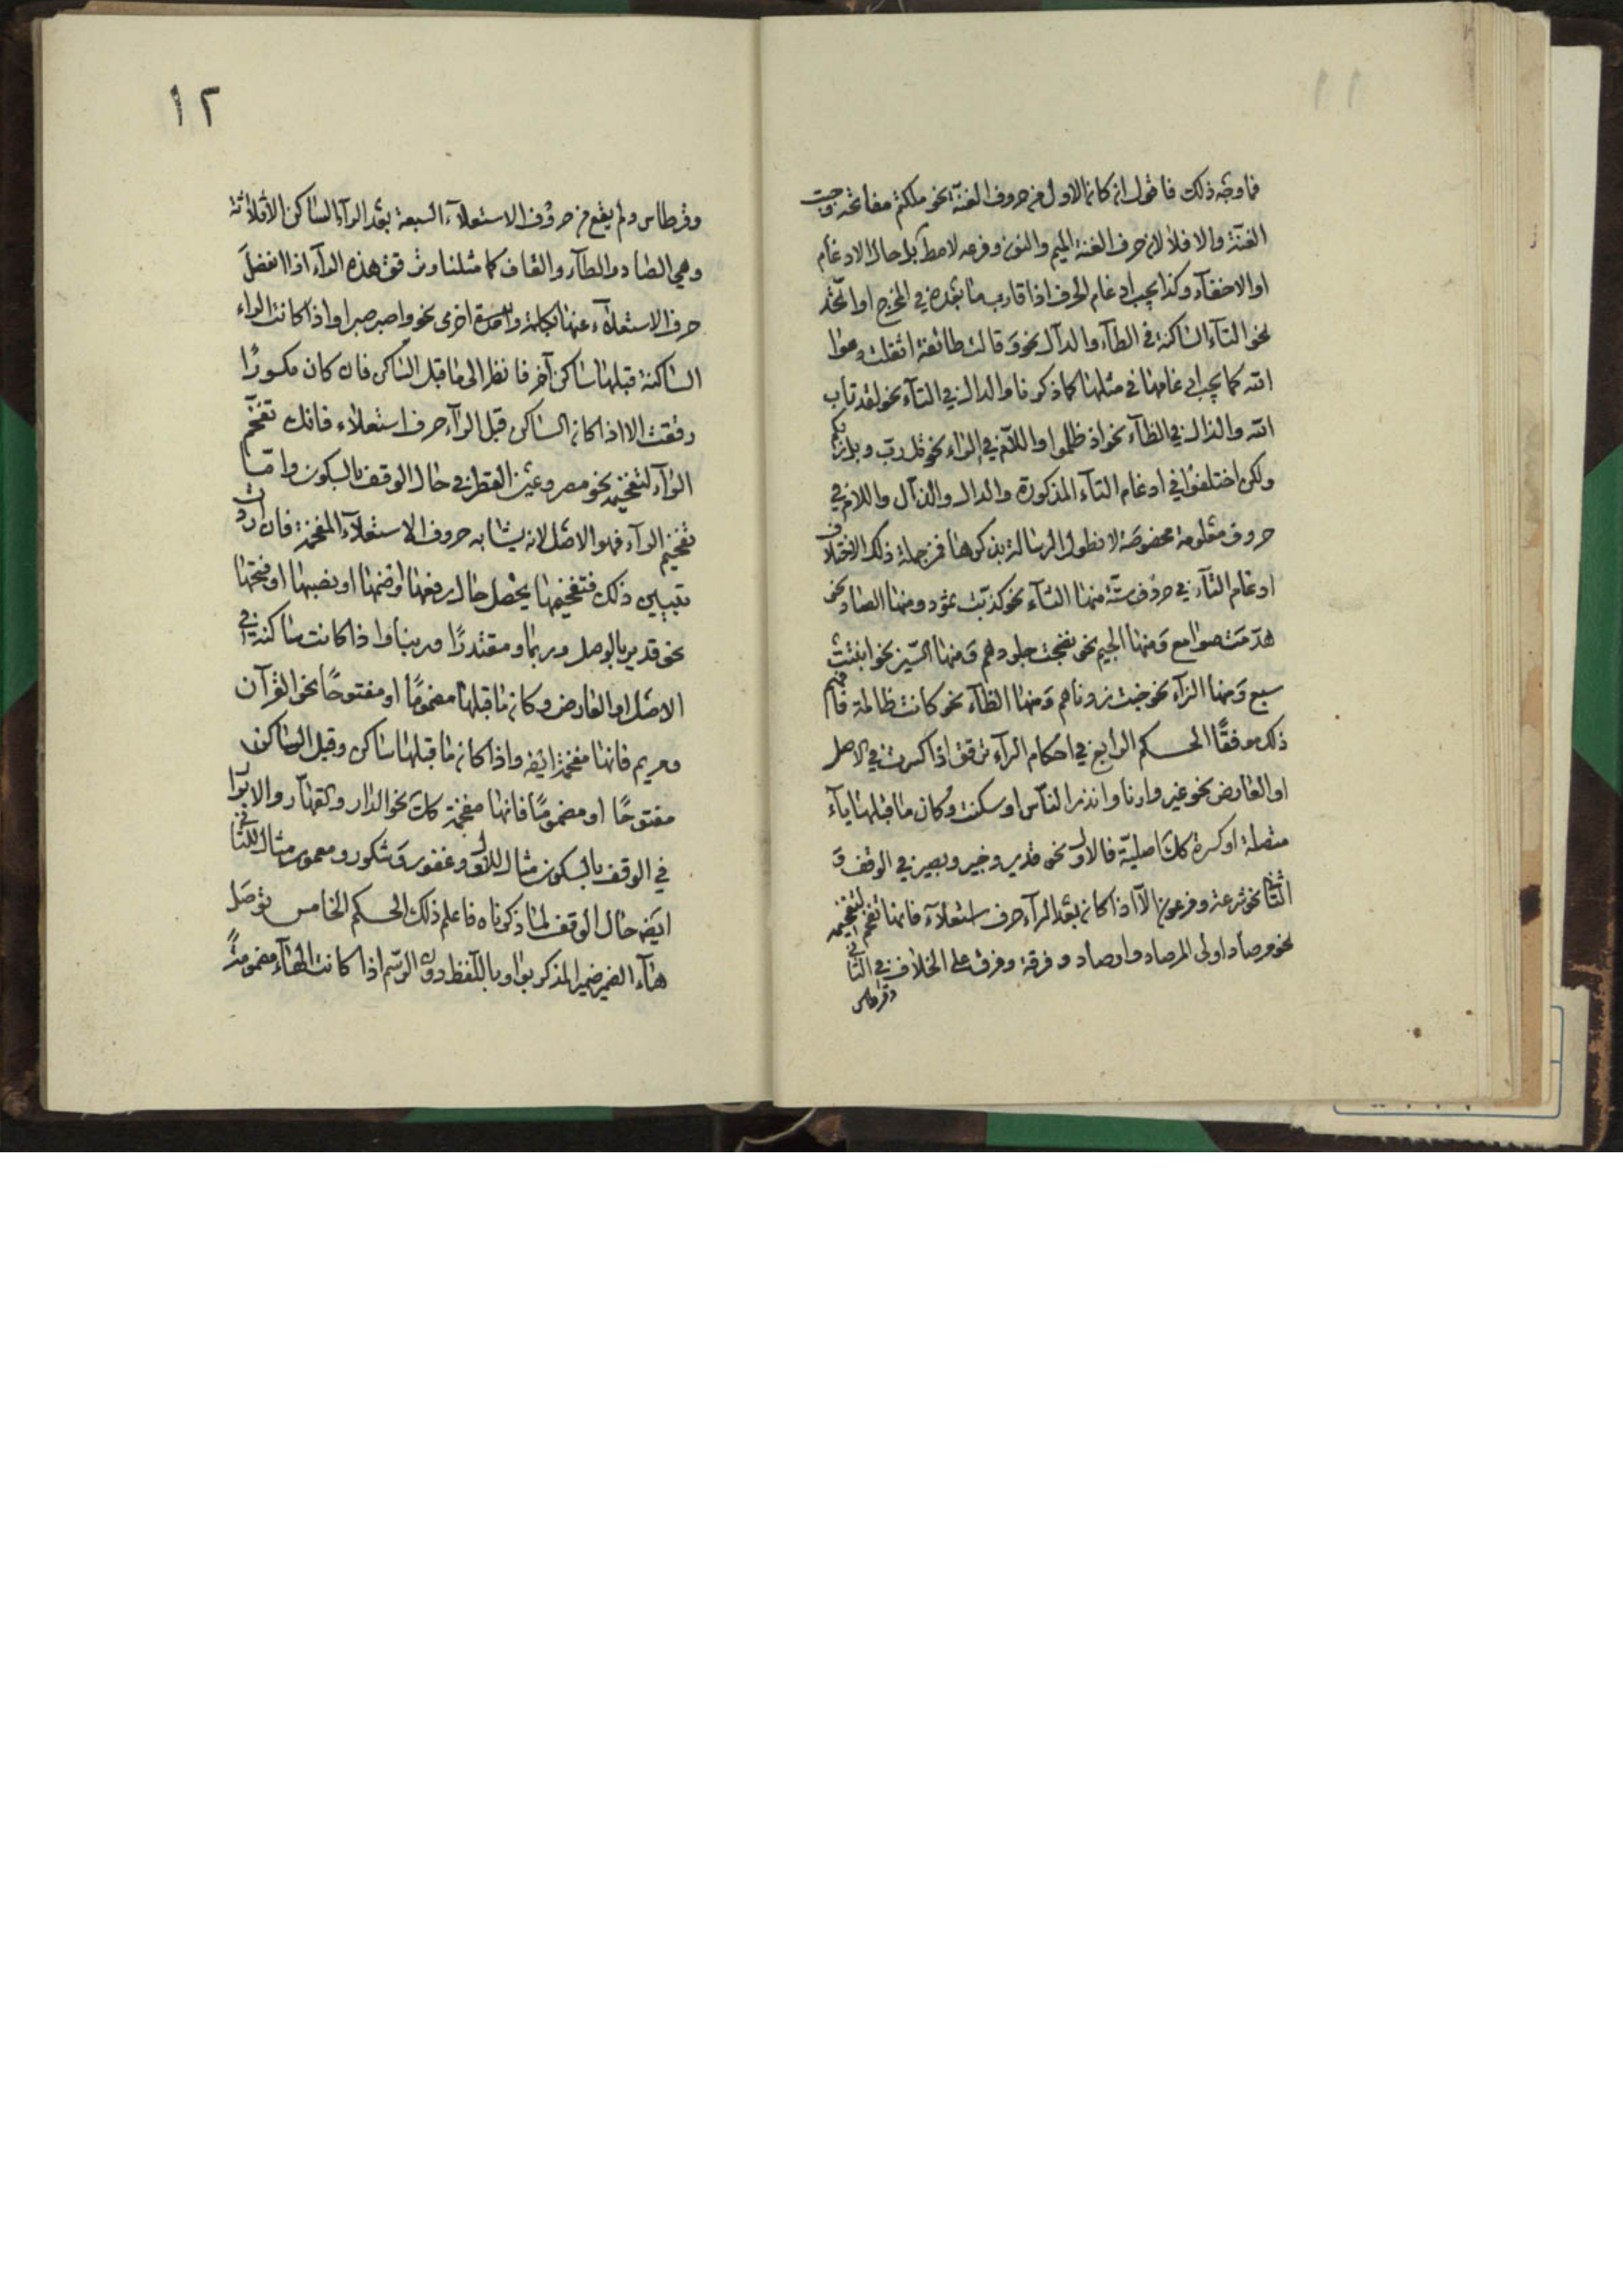 ١١
فما وجه ذلك فاقول ان كان الاول من حروف الغنة نحو ملكتم مفاتحه وجبت
الغنة والا فلا لان حرف الغنة الميم والنون وفرعه لا مط بل حال الادغام
او الاخفآء وكذا يجب ادغام الحرف اذا قارب ما بعده في المخرج او اتحد
نحو التآء الساكنة في الطآء والدآل نحو وقالت طائفة اثقلت دعوا
الله كما يجب ادغامها في مثلها كما ذكرنا والدال في التآء نحو لقد تاب
الله والذال في الظآء نحو اذ ظلموا واللآم في الراء نحو قل رب وبل ربكم
ولكن اختلفوا في ادغام التآء المذكورة والدال والذآل واللام في
حروف معلومة مخصوصة لا نطول الرسالة بذكرها فمن جملة ذلك الاختلاف
ادغام التآء في حروف ستة منها الثآء نحو كذبت ثمود ومنها الصاد نحو
هدمت صوامع ومنها الجيم نحو نضجت جلودهم ومنها السين نحو انبتت
سبع ومنها الزآء نحو خبت زدناهم ومنها الظآء نحو كانت ظالمة فافهم
ذلك موفقًا الحكم الرابع في احكام الرآء ترقق اذا كسرت في الاصل
او العارض نحو غير وارنا وانذر الناس او سكنت وكان ما قبلها يآء
متصلة او كسرة كك اصلية فالاول نحو قدير وخبير وبصير في الوقف و
الثاني نحو شرعة وفرعون الآ اذا كان بعد الرآء حرف استعلآء فانها تفخم لتفخيمه
نحو مرصادا ولبالمرصاد وارصاد وفرقة وفرق على الخلاف في الثاني
وقرطاس
١٢
وقرطاس ولم يقع من حروف الاستعلآء السبعة بعد الرآء الساكن الا ثلاثة
وهي الصاد والطآء والقاف كما مثلنا وترقق هذه الرآء اذا انفصل
حرف الاستعلآء عنها بكلمة اخرى نحو واصبر صبرا واذا كانت الراء
الساكنة قبلها ساكن آخر فانظر الى ما قبل الساكن فان كان مكسورًا
رققت الا اذا كان الساكن قبل الرآء حرف استعلاء فانك تفخم
الرآء لتفخيمه نحو مصر وعين القطر في حال الوقف بالسكون واما
تفخيم الرآء فهو الاصل لانه يشابه حروف الاستعلآء المفخمة فان اردت
تبيين ذلك فتفخيمها يحصل حال رفعها او ضمها او نصبها او فتحها
نحو قدير بالوصل وربما ومقتدرًا وربنا واذا كانت ساكنة في
الاصل او العارض وكان ما قبلها مضمومًا او مفتوحًا نحو القرآن
ومريم فانها مفخمة ايضه واذا كان ما قبلها ساكن وقبل الساكن
مفتوحًا او مضمومًا فانها مفخمة كك نحو الدار والقهآر والابرار
في الوقف بالسكون مثال للاول وغفور وشكور ومعمور مثال للثاني
ايضه حال الوقف لما ذكرناه فاعلم ذلك الحكم الخامس توصل
هآء الضمير ضمير المذكر بواو باللفظ دون الرسم اذا كانت الهآء مضمومةً